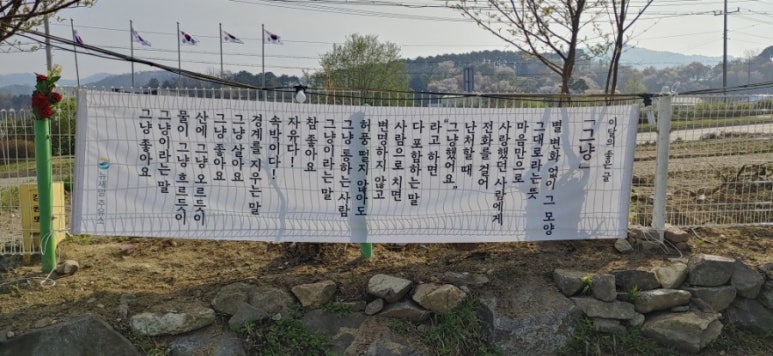 이달의 좋은 글
「그냥」
별 변화 없이 그 모양
그대로라는 뜻
마음만으로
사랑했던 사람에게
전화를 걸어
난처할 때
"그냥했어요"
라고 하면
다 포함하는 말
사람으로 치면
변명하지 않고
허풍 떨지 않아도
그냥 통하는 사람
그냥이라는 말
참 좋아요
자유다!
속박이다!
경계를 지우는 말
그냥 살아요
그냥 좋아요
산에 그냥 오르듯이
물이 그냥 흐르듯이
그냥이라는 말
그냥 좋아요
주유소